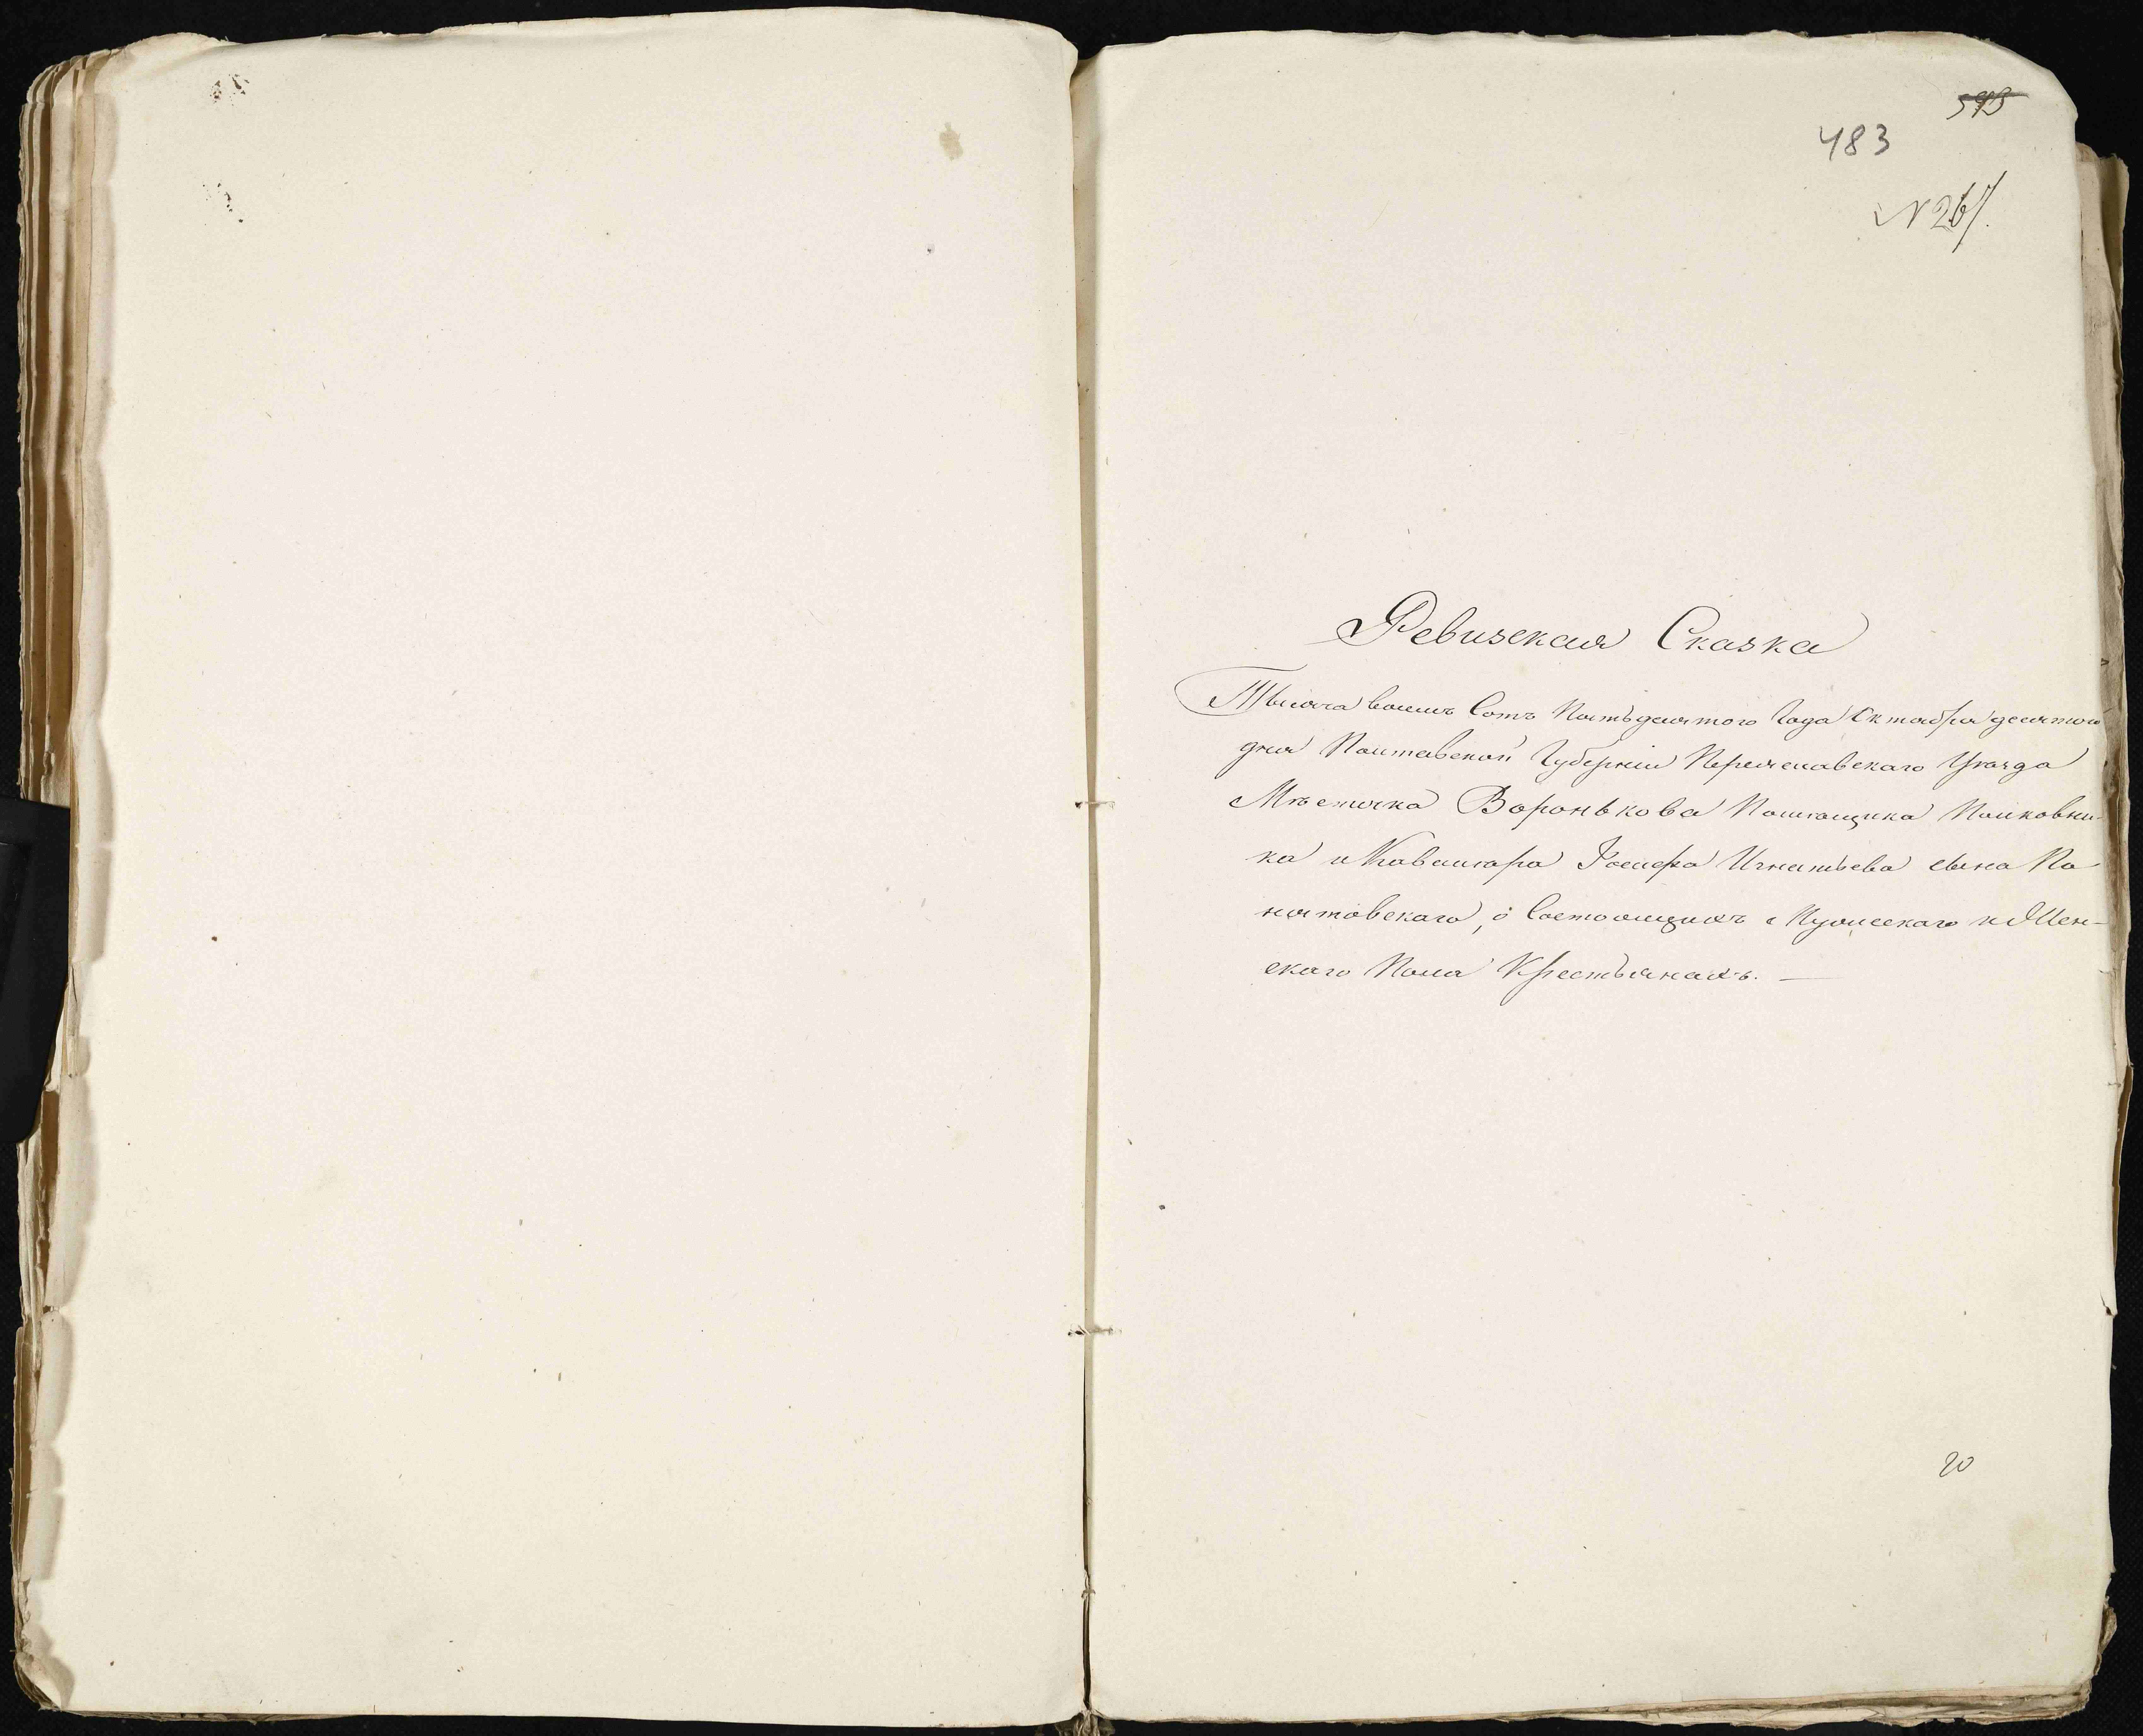 593
483
N 267.
Ревизская Сказка
Тысяча восемь Сотъ Пятьдесятого Года Октября десятого
дня Полтавской Губерніи Переяславскаго Уѣзда
Мѣстечка Воронькова Помѣщика Полковни-
ка и Кавалера Іосифа Игнатьева сына По
нятовскаго, о Состоящихъ Мужескаго и Жен-
скаго Пола Крестьянахъ. —
20